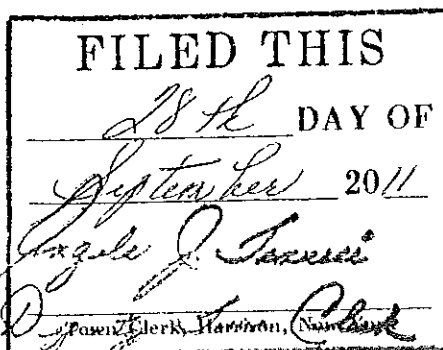 FILED THIS
28th DAY OF
September 2011
Angela J.
Town Clerk, Harrison, New York
Clerk